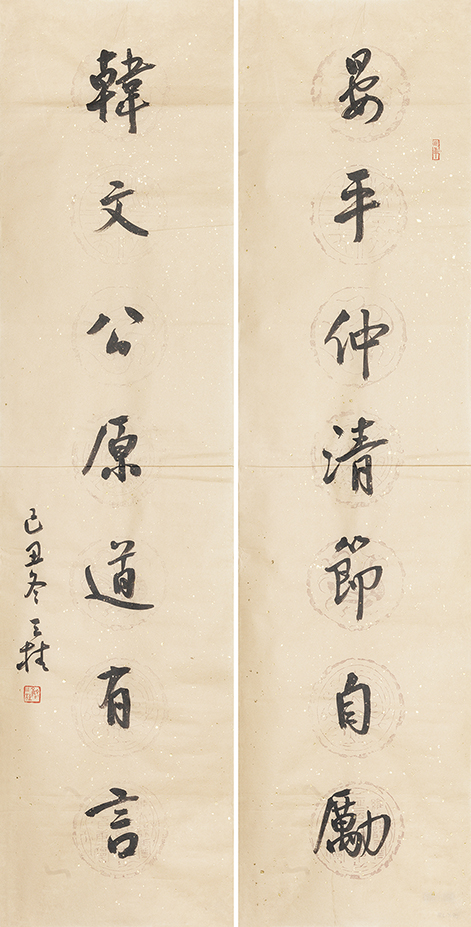 晏平仲清節自勵
韓文公原道有言
己丑冬 王桂